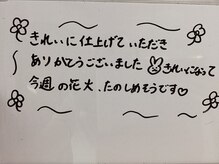 きれいに仕上げていただき
ありがとうございました きれいになって
今週の花火、たのしめそうです♡